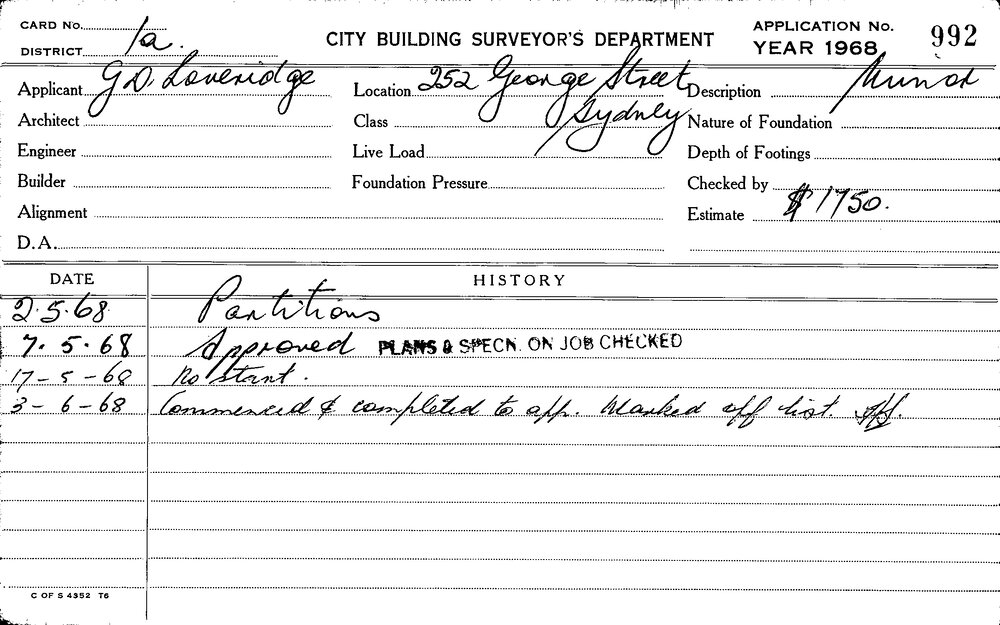 CARD No.
DISTRICT 1a.
CITY BUILDING SURVEYOR'S DEPARTMENT
APPLICATION No. 992
YEAR 1968
Applicant G D. Loveridge
Location 252 George Street
Sydney
Description Minor
Architect
Class
Nature of Foundation
Engineer
Live Load
Depth of Footings
Builder
Foundation Pressure
Checked by
Alignment
Estimate $1750.
D.A.
DATE HISTORY
2.5.68 Partitions
7.5.68 Approved PLANS & SPECN. ON JOB CHECKED
17-5-68 No start.
3-6-68 Commenced & completed to app. Marked off list.
C OF S 4352 T6